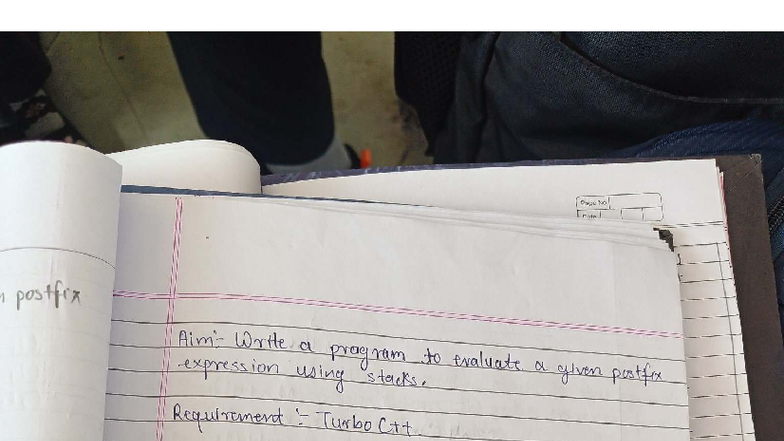 Page No
postfix
Aim:- Write a program to evaluate a given postfix
expression using stacks.
Requirement :- Turbo C++.